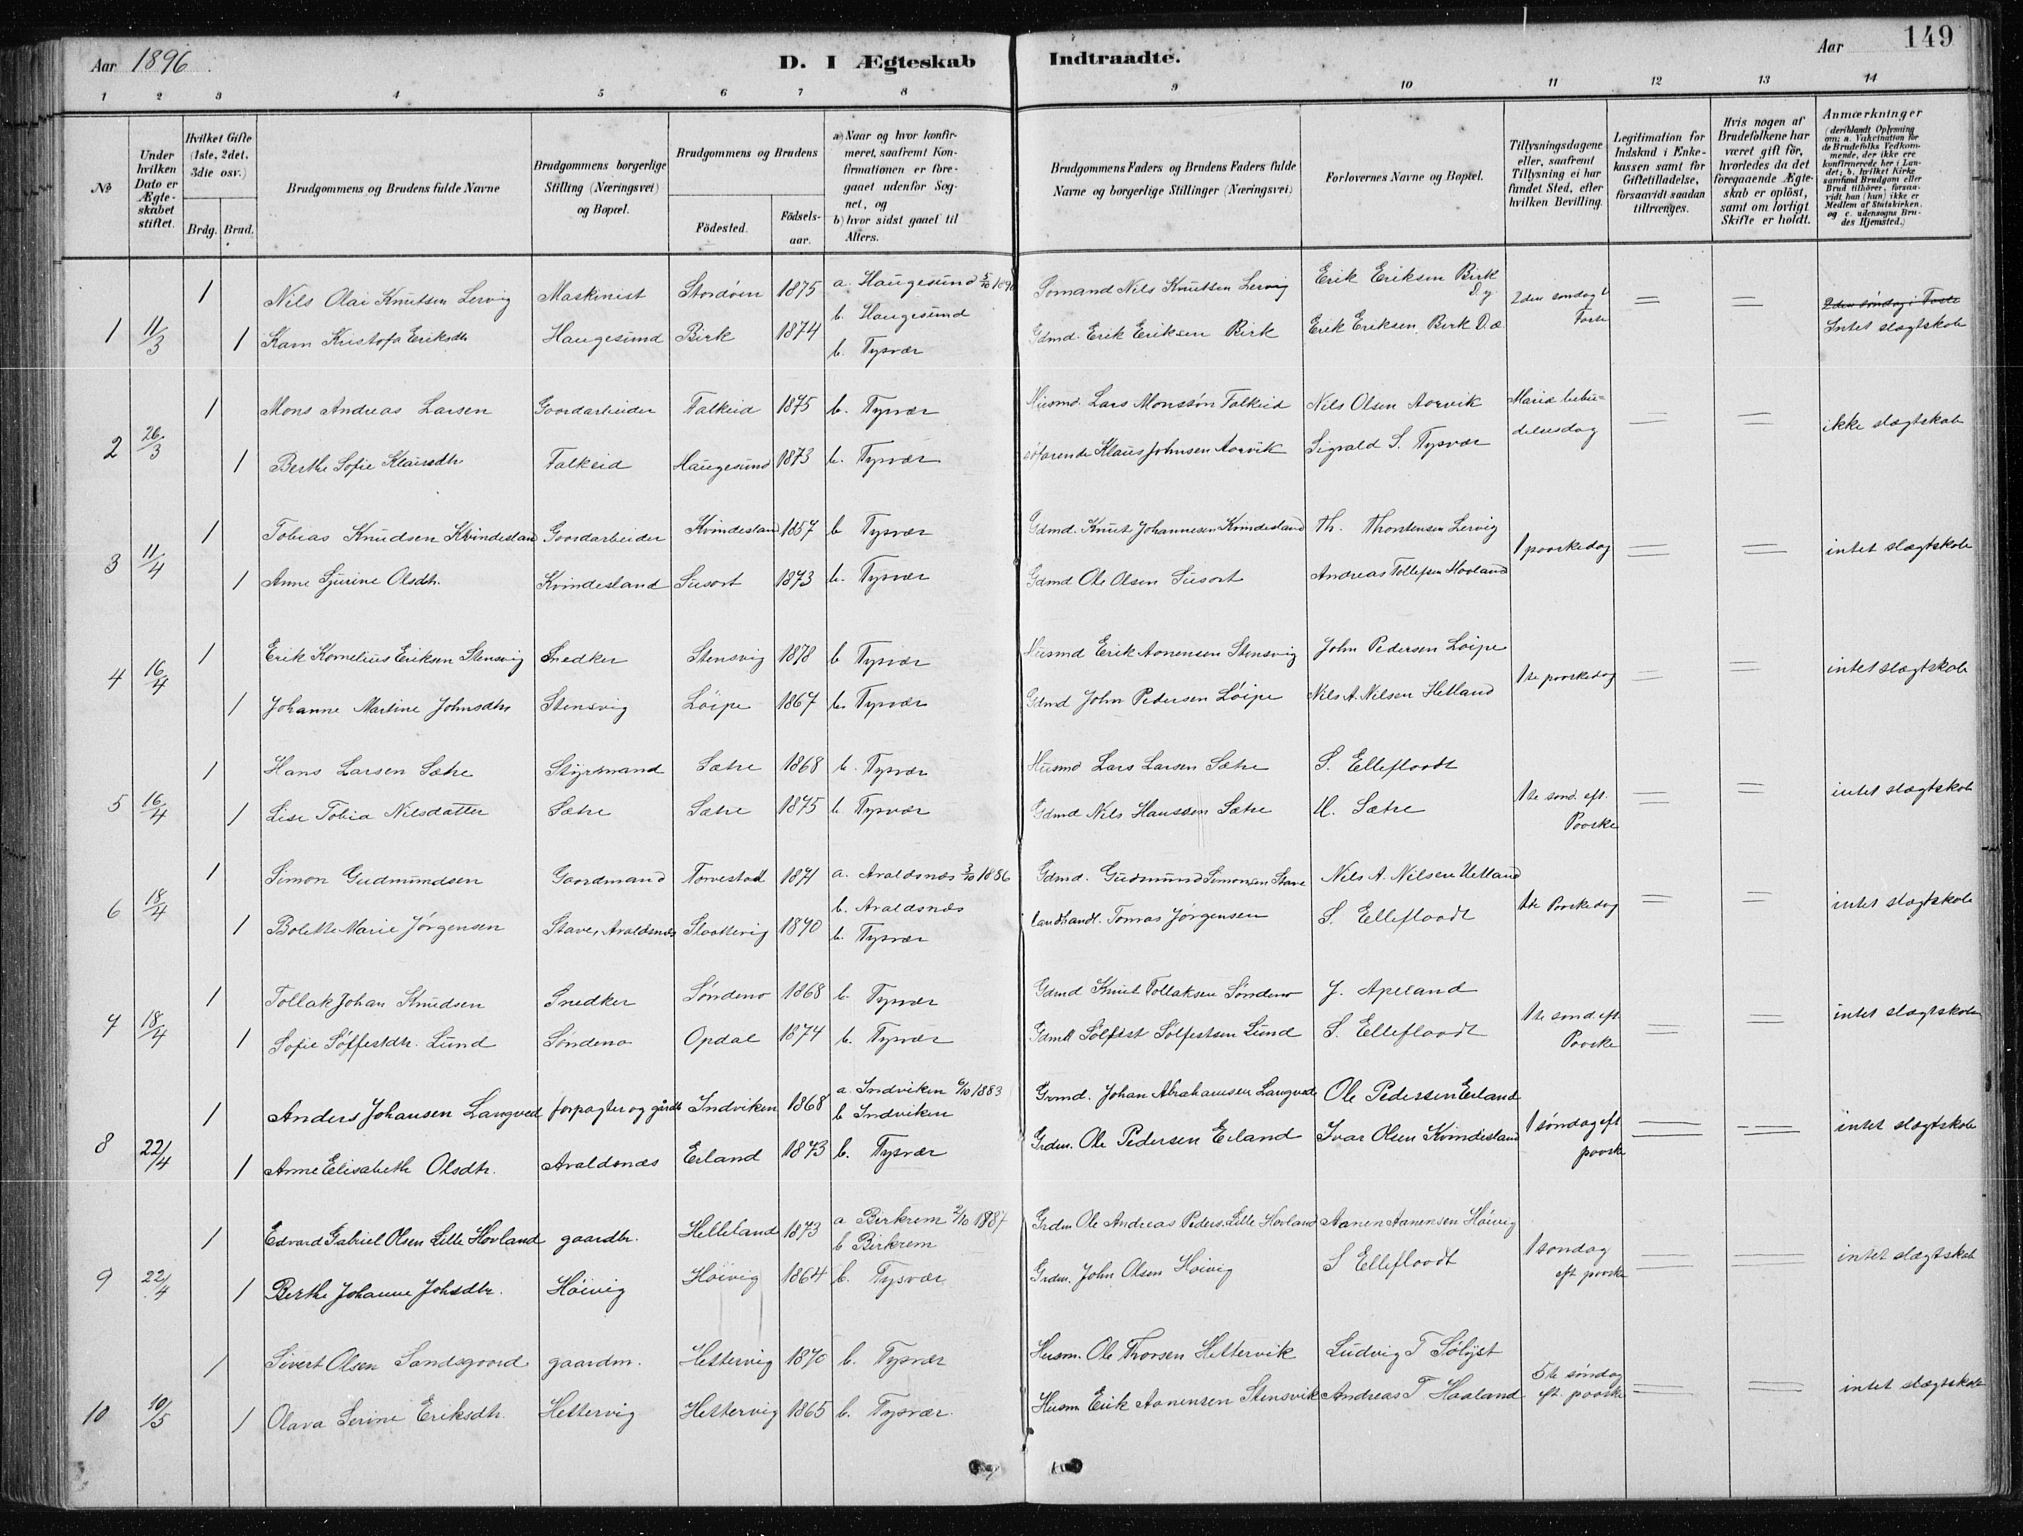 Aar 1896. D. I Ægteskab Indtraadte. Aar 149
1 2 3 4 5 6 7 8 9 10 11 12 13 14
No
Under hvilken Dato er Ægteskabet stiftet.
Hvilket Gifte (1ste, 2det, 3die osv.)
Brdg. Brud.
Brudgommens og Brudens fulde Navne
Brudgommens borgerlige Stilling (Næringsvei) og Bopæl.
Brudgommens og Brudens
Fødested. Fødselsaar.
a) Naar og hvor konfirmeret, saafremt Konfirmationen er foregaaet udenfor Sognet, og
b) hvor sidst gaaet til Alters.
Brudgommens Faders og Brudens Faders fulde Navne og borgerlige Stillinger (Næringsvei)
Forlovernes Navne og Bopæl.
Tillysningsdagene eller, saafremt Tillysning ei har fundet Sted, efter hvilken Bevilling.
Legitimation for Indskud i Enkekassen samt for Giftetilladelse, forsaavidt saadan tiltrænges.
Hvis nogen af Brudefolkene har været gift før, hvorledes da det foregaaende Ægteskab er opløst, samt om lovligt Skifte er holdt.
Anmærkninger (deriblandt Oplysning om: a. Vakcination for de Brudefolks Vedkommende, der ikke ere konfirmerede her i Landet; b. hvilket Kirkesamfund Brudgom eller Brud tilhører, forsaavidt han (hun) ikke er Medlem af Statskirken, og c. udensogns Brudes Hjemsted.)
1 11/3 1 Nils Olai Knutsen Lervig Maskinist Stordøen 1875 a. Haugesund 5/10 1890 b. Haugesund Sømand Nils Knutsen Lervig Erik Eriksen Birk D.y. 2den søndag i Faste = = 2den søndag i Faste
1 Karn Kristofa Eriksdtr Haugesund Birk 1874 b. Tysvær Gdmd. Erik Eriksen Birk Erik Eriksen Birk D.æ. Intet slægtskab
2 26/3 1 Mons Andreas Larsen Gaardarbeider Falkeid 1875 b. Tysvær Husmd. Lars Monssøn Falkeid Nils Olsen Aarvik Mariæ bebudelsesdag = = ikke slægtskab
1 Berthe Sofie Klausdtr Falkeid Haugesund 1873 b. Tysvær Klaus Johnsen Aarvik Sigvald S. Tysvær
3 11/4 1 Tobias Knudsen Kvindesland Gaardarbeider Kvindesland 1857 b Tysvær Gdmd. Knut Johannesen Kvindesland Th. Thorstensen Lervig 1 paaskedag = = intet slægtskab
1 Anne Gurine Olsdtr. Kvindesland Susort 1873 b. Tysvær Gdmd Ole Olsen Susort Andreas Tollefsen Hovland
4 16/4 1 Erik Kornelius Eriksen Stensvig Snedker Stensvig 1878 b Tysvær Husmd Erik Aanensen Stensvig John Pedersen Løipe 1te paaskedag = = intet slægtskab
1 Johanne Martine Johnsdtr Stensvig Løipe 1867 b. Tysvær Gdmd John Pedersen Løipe Nils A. Nilsen Hetland
5 16/4 1 Hans Larsen Sætre Styrmand Sætre 1868 b. Tysvær Husmd Lars Larsen Sætre S. Elleflaadt 1te sønd. eft. Paaske = = intet slægtskab
1 Lise Tobia Nilsdatter Sætre Sætre 1875 b. Tysvær Gdmd Nils Hanssen Sætre H. Sætre
6 18/4 1 Simon Gudmundsen Gaardmand Torvestad 1871 a. Avaldsnæs 3/10 1886 b. Avaldsnæs Gdmd. Gudmund Simonsen Stave Nils A. Nilsen Hetland 1te Paaskedag = = intet slægtskab
1 Bolette Marie Jørgensen Stave, Avaldsnæs Slaattevig 1870 b. Tysvær Landhandl. Tomas Jørgensen S. Elleflaadt
7 18/4 1 Tollak Johan Knudsen Snedker Søndenø 1868 b. Tysvær Gdmd Knut Tollaksen Søndenø J. Apeland 1te sønd eft. Paaske = = intet slægtskab
1 Sofie Sølfestdtr. Lund Søndenø Opdal 1874 b. Tysvær Gdmd Sølfest Sølfestsen Lund S. Elleflaadt
8 22/4 1 Anders Johansen Langved forpagter og gårdb Indviken 1868 a. Indviken 6/10 1883 b Indviken Grmd. Johan Abrahamsen Langved Ole Pedersen Eiland 1 søndag eft paaske = = intet slægtskab
1 Anne Elisabeth Olsdtr. Avaldsnæs Eiland 1873 b. Tysvær Grdm. Ole Pedersen Eiland Ivar Olsen Kvindesland
9 22/4 1 Edvard Gabriel Olsen Lille Hovland gaardbr. Helleland 1873 a Birkrem 2/10 1887 b Birkrem Grdm Ole Andreas Peders. Lille Hovland Aanen Aanensen Høivig 1 søndag eft paaske = = intet slægtskab
1 Berthe Johanne Johsdtr. Høivig Høivig 1864 b. Tysvær Grdm. John Olsen Høivig S Elleflaadt
10 10/5 1 Sivert Olsen Sandsgaard gaardm. Hettervig 1870 b. Tysvær Husm. Ole Thorsen Hettervik Ludvig T Søløst 5te søndag eft. paaske = = intet slægtskab
1 Olava Serine Eriksdtr. Hettervig Hettervig 1865 b. Tysvær. Husm Erik Aanensen Stensvik Andreas T Haaland